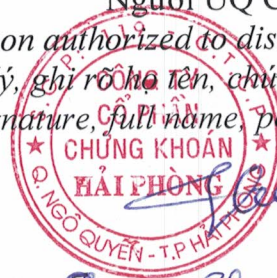 Người UQ C
on authorized to dis
ý, ghi rõ họ tên, chú
nature, full name, p
CÔNG TY
CỔ PHẦN
CHỨNG KHOÁN
HẢI PHÒNG
Q. NGÔ QUYỀN - T.P HẢI PHÒNG